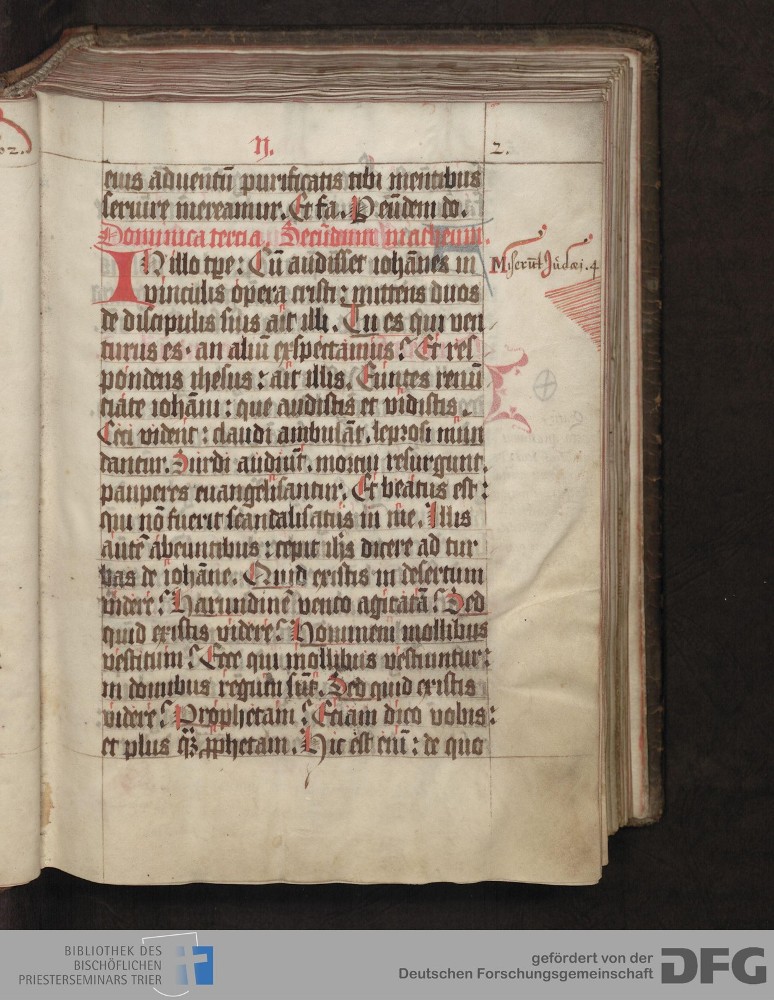 II.
2.
eius aduentū purificatis tibi mentibus
seruire mereamur. Et fa. P eūdem do.
Dominica tercia. Secūdum matheum.
IN illo tpre: Cū audisset iohānes in
vinculis opera cristi: mittens duos
de discipulis suis ait illi. Tu es qui ven
turus es· an aliū exspectamus? Et res
pondens ihesus: ait illis. Euntes renū
ciate iohāni: que audistis et vidistis.
Ceci vidēt: claudi ambulāt. leprosi mun
dantur. Surdi audiūt. mortui resurgunt.
pauperes euangelisantur. Et beatus est:
qui nō fuerit scandalisatus in me. Illis
autē abeuntibus: cepit ihs dicere ad tur
bas de iohāne. Quid existis in desertum
videre? Harundinē vento agitatā? Sed
quid existis videre? Hominem mollibus
vestitum? Ecce qui mollibus vestiuntur:
in domibus regum sūt. Sed quid existis
videre? Prophetam? Etiam dico vobis:
et plus qꝫ ꝓphetam. Hic est eni: de quo
Miserūt Judæi. 4
BIBLIOTHEK DES
BISCHÖFLICHEN
PRIESTERSEMINARS TRIER
gefördert von der
Deutschen Forschungsgemeinschaft
DFG